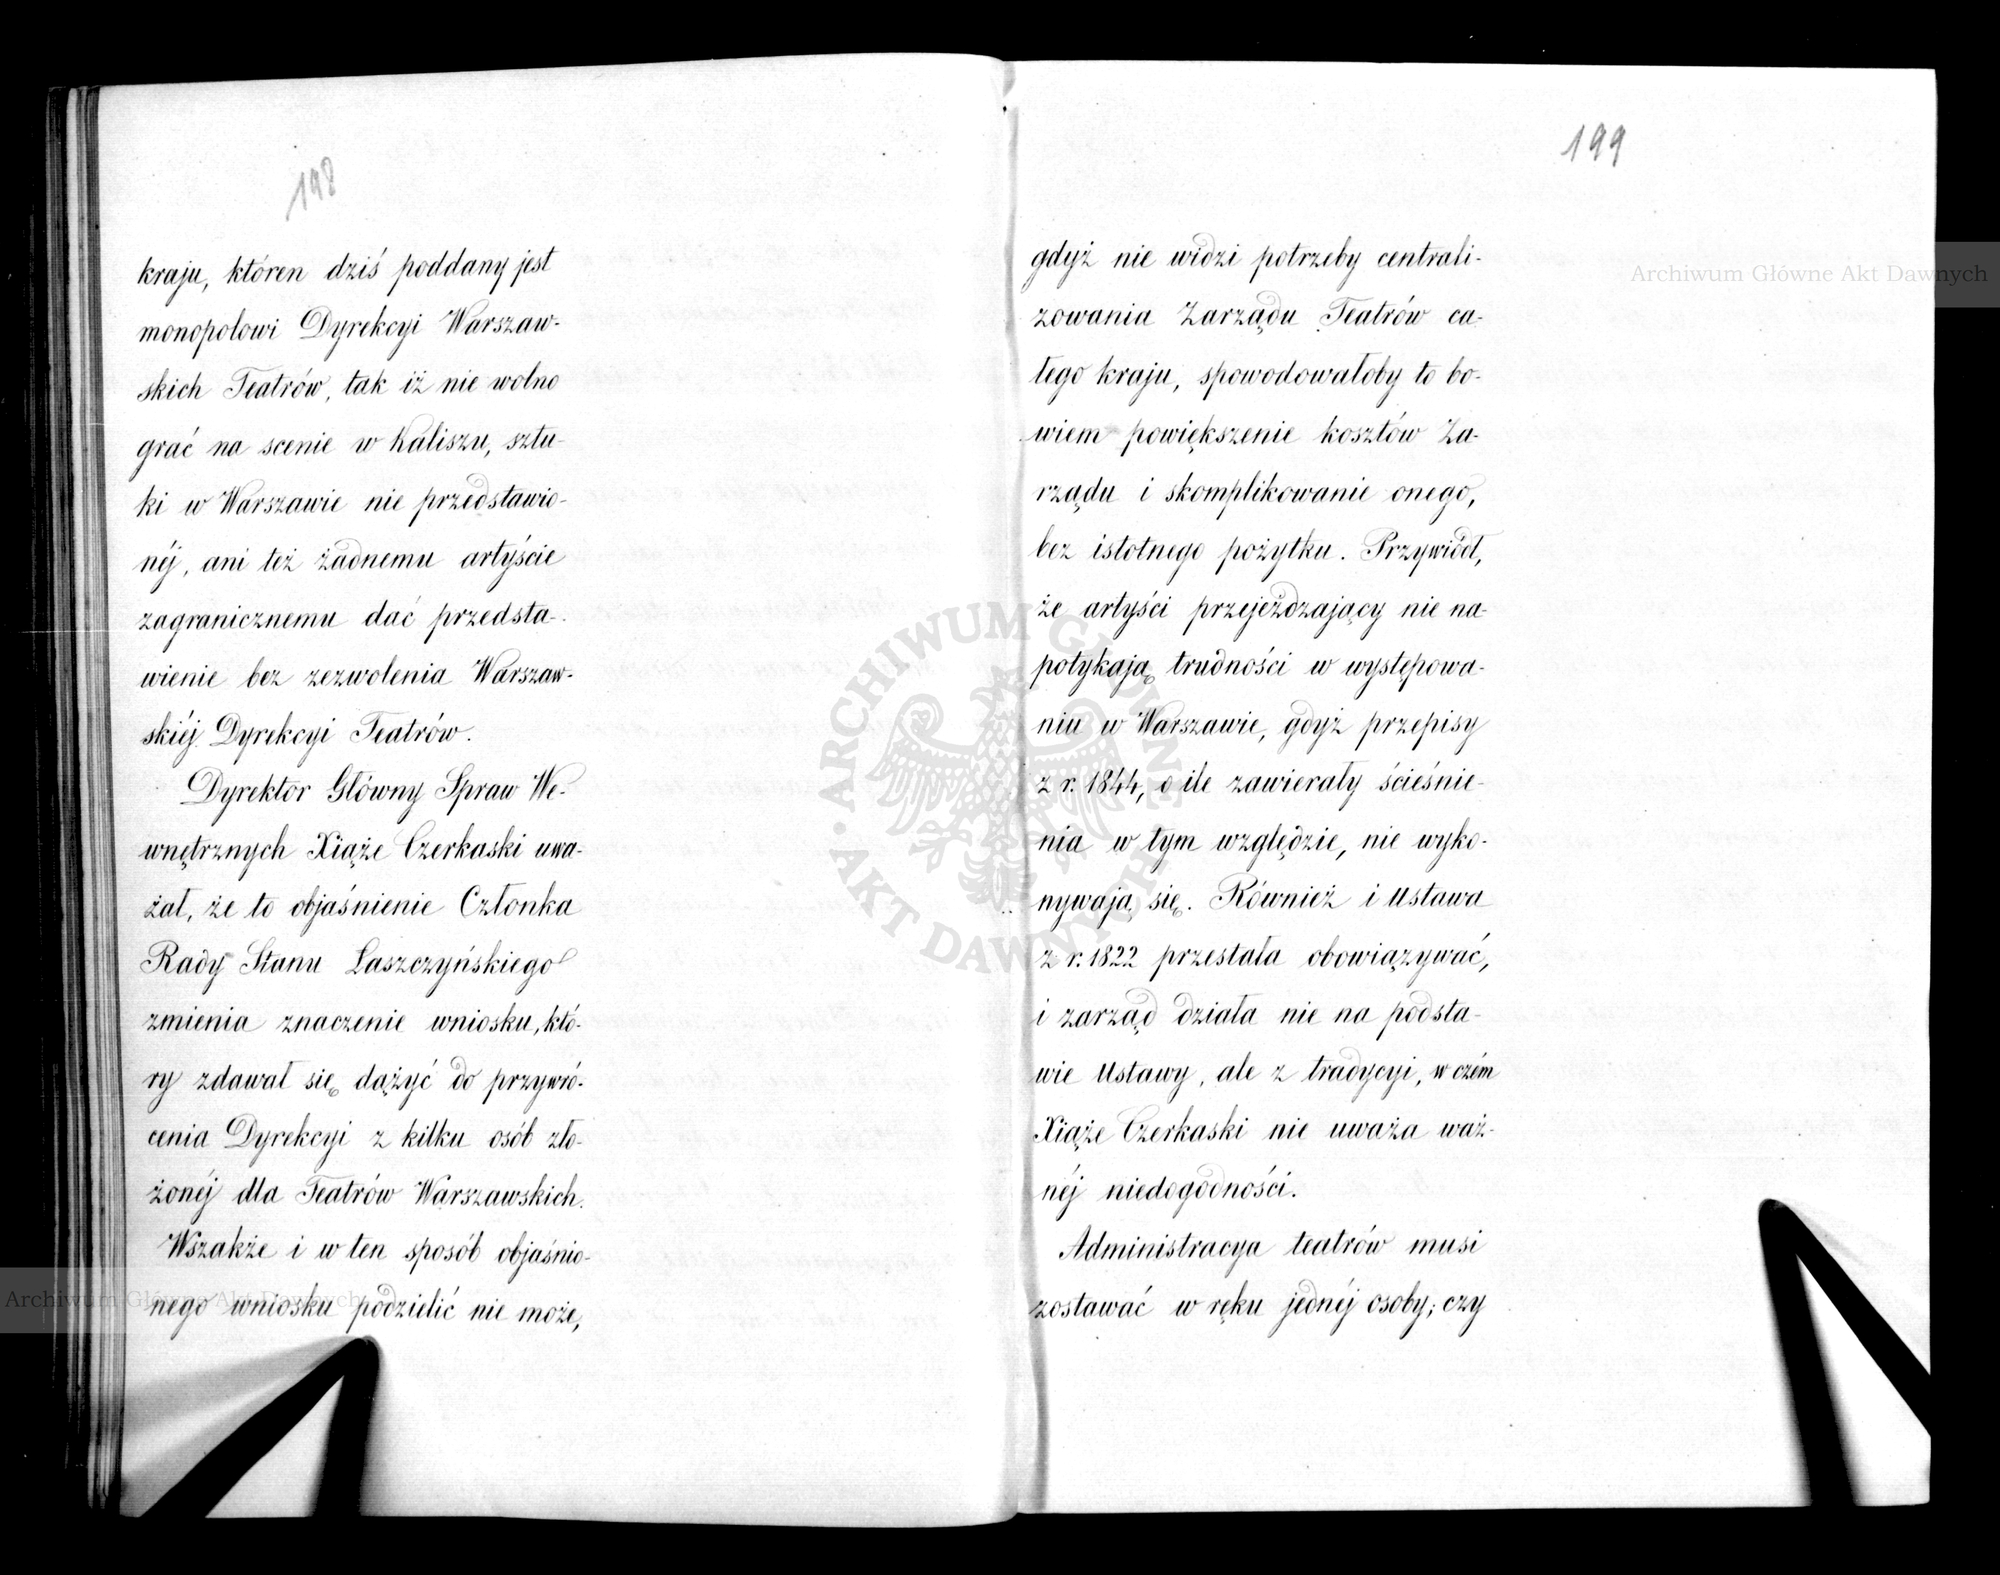 198
kraju, któren dziś poddany jest
monopolowi Dyrekcyi Warszaw-
skich Teatrów, tak iż nie wolno
grać na scenie w Kaliszu, sztu-
ki w Warszawie nie przedstawio-
néj, ani też żadnemu artyście
zagranicznemu dać przedsta-
wienie bez zezwolenia Warszaw-
skiéj Dyrekcyi Teatrów.
Dyrektor Główny Spraw We-
wnętrznych Xiąże Czerkaski uwa-
żał, że to objaśnienie Członka
Rady Stanu Laszczyńskiego
zmienia znaczenie wniosku, któ-
ry zdawał się dążyć do przywró-
cenia Dyrekcyi z kilku osób zło-
żonéj dla Teatrów Warszawskich.
Wszakże i w ten sposób objaśnio-
nego wniosku podzielić nie może,
199
gdyż nie widzi potrzeby centrali-
zowania Zarządu Teatrów ca-
łego kraju, spowodowałoby to bo-
wiem powiększenie kosztów Za-
rządu i skomplikowanie onego,
bez istotnego pożytku. Przywiódł,
że artyści przejeżdzający nie na-
potykają trudności w występowa-
niu w Warszawie, gdyż przepisy
z r. 1844, o ile zawierały ścieśnie-
nia w tym względzie, nie wyko-
nywają się. Również i Ustawa
z r. 1822 przestała obowiązywać,
i zarząd działa nie na podsta-
wie Ustawy, ale z tradycyi, w czém
Xiąże Czerkaski nie uważa waż-
néj niedogodności.
Administracya teatrów musi
zostawać w ręku jednéj osoby; czy
Archiwum Główne Akt Dawnych
Archiwum Główne Akt Dawnych
ARCHIWUM GŁÓWNE AKT DAWNYCH